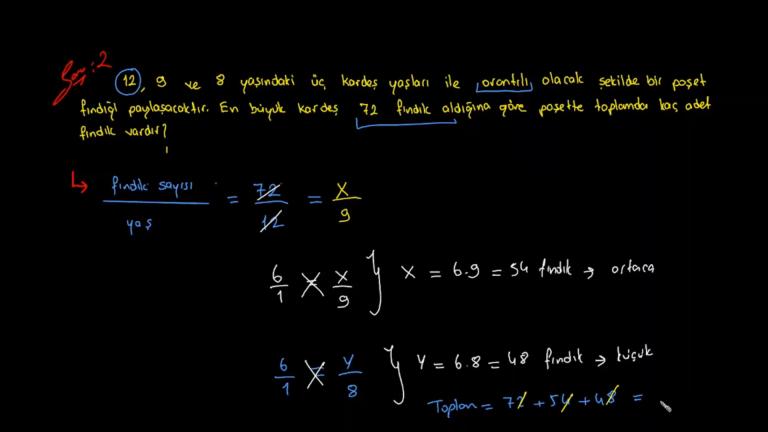 Soru:2
12, 9 ve 8 yaşındaki üç kardeş yaşları ile orantılı olacak şekilde bir poşet
fındığı paylaşacaktır. En büyük kardeş 72 fındık aldığına göre poşette toplamda kaç adet
fındık vardır?
fındık sayısı / yaş = 72/12 = x/9
6/1 = x/9 } x = 6.9 = 54 fındık → ortanca
6/1 = y/8 } y = 6.8 = 48 fındık → küçük
Toplam = 72 + 54 + 48 =